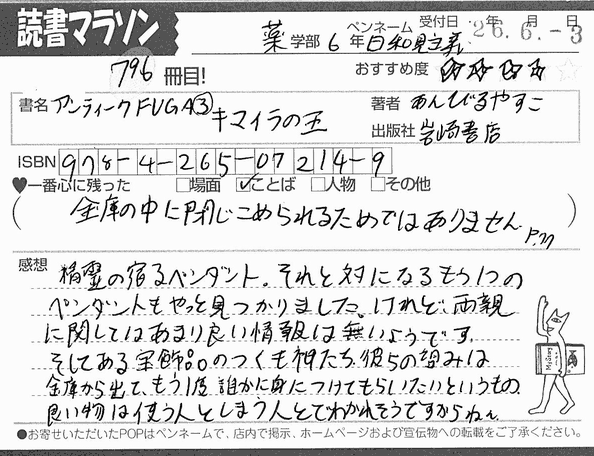 読書マラソン
薬 学部 6 年 ペンネーム 日和見主義 受付日 年 月 日 26.6.-3
796 冊目!
おすすめ度 ☆☆☆☆☆
書名 アンティークFUGA③ キマイラの王
著者 あんびるやすこ
出版社 岩崎書店
ISBN 978-4-265-07214-9
♥一番心に残った □場面 ☑ことば □人物 □その他
(金庫の中に閉じこめられるためではありません P.77)
感想
精霊の宿るペンダント。それと対になるもう1つの
ペンダントもやっと見つかりました。けれど、両親
に関してはあまり良い情報は無いようです。
そしてある宝飾品のつくも神たち、彼らの望みは
金庫から出て、もう1度誰かに身につけてもらいたいというもの。
良い物は使う人としまう人とでわかれそうですからねぇ
●お寄せいただいたPOPはペンネームで、店内で掲示、ホームページおよび宣伝物への転載をご了承ください。